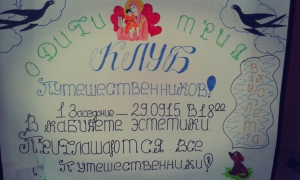 ОДИГИТРИЯ
КЛУБ
ПУТЕШЕСТВЕННИКОВ!
1 Заседание – 29.09.15 В 18 00
В КАБИНЕТЕ ЭСТЕТИКИ.
ПРИГЛАШАЮТСЯ ВСЕ
ПУТЕШЕСТВЕННИКИ!